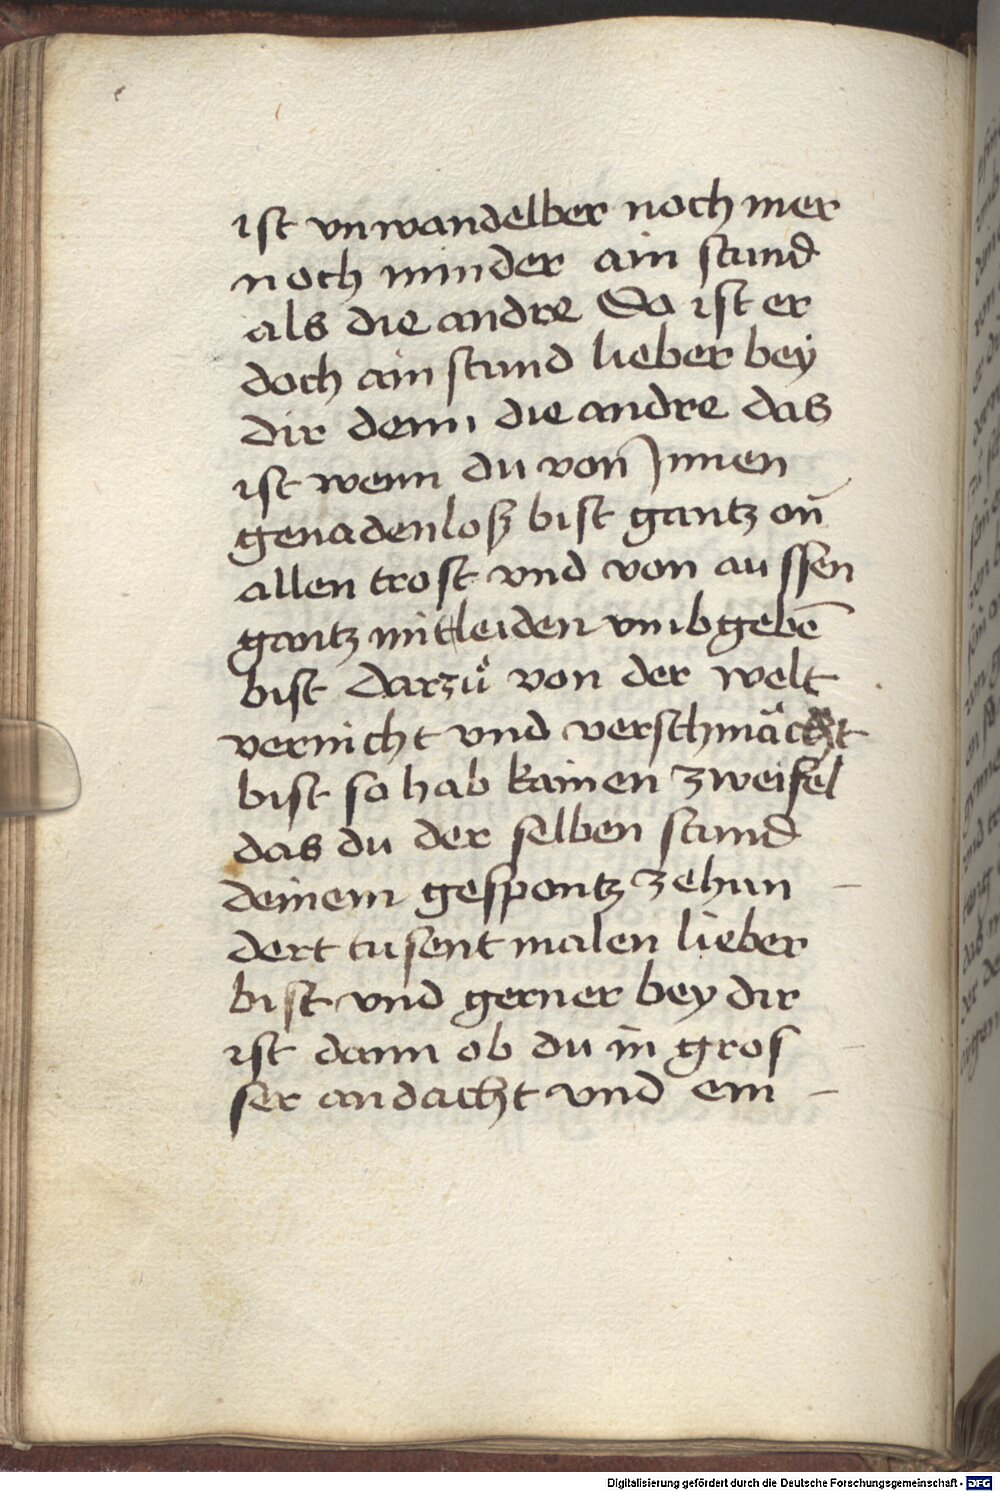 ist vnwandelber noch mer
noch minder ain stund
als die andre So ist er
doch ain stund lieber bey
dir denn die andre das
ist wenn du von Jnnen
genadenloß bist gantz on̄
allen trost vnd von aussen
gantz mit leiden vmbgebē
bist Darzů von der welt
vernicht vnd verschmächt
bist so hab kainen zweifel
das du der selben stund
deinem gespontz zehun
dert tusent malen lieber
bist vnd gerner bey dir
ist dann ob du in gros
ser andacht vnd ein
Digitalisierung gefördert durch die Deutsche Forschungsgemeinschaft - DFG